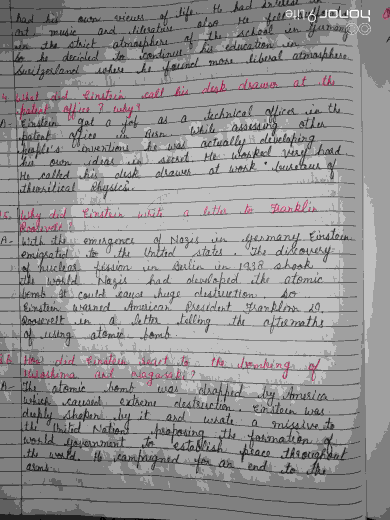 had his own views of life. He had interest in
art music and literature also. He felt
in the strict atmosphere of the school in Germany
so he decided to continue his education in
Switzerland where he found more liberal atmosphere.
4. What did Einstein call his desk drawer at the
patent office? Why?
A- Einstein got a job as a technical officer in the
patent office in Bern. While assessing other
people's inventions he was actually developing
his own ideas in secret. He worked very hard
He called his desk drawer at work 'bureau of
theoritical Physics.
5. Why did Einstein write a letter to Franklin
Roosevelt?
A- With the emergence of Nazis in Germany Einstein
emigrated to the United States. The discovery
of nuclear fission in Berlin in 1938 shook
the world Nazis had developed the atomic
bomb. It could cause huge destruction. So
Einstein warned American President Franklin D.
Roosevelt in a letter telling the aftermaths
of using atomic bomb.
6. How did Einstein react to the bombing of
Hiroshima and Nagasaki?
A- The atomic bomb was dropped by America
which caused extreme destruction. Einstein was
deeply shaken by it and wrote a missive to
the United Nations proposing the formation of
world government to establish peace throughout
the world. He campaigned for an end to the
arms
honor